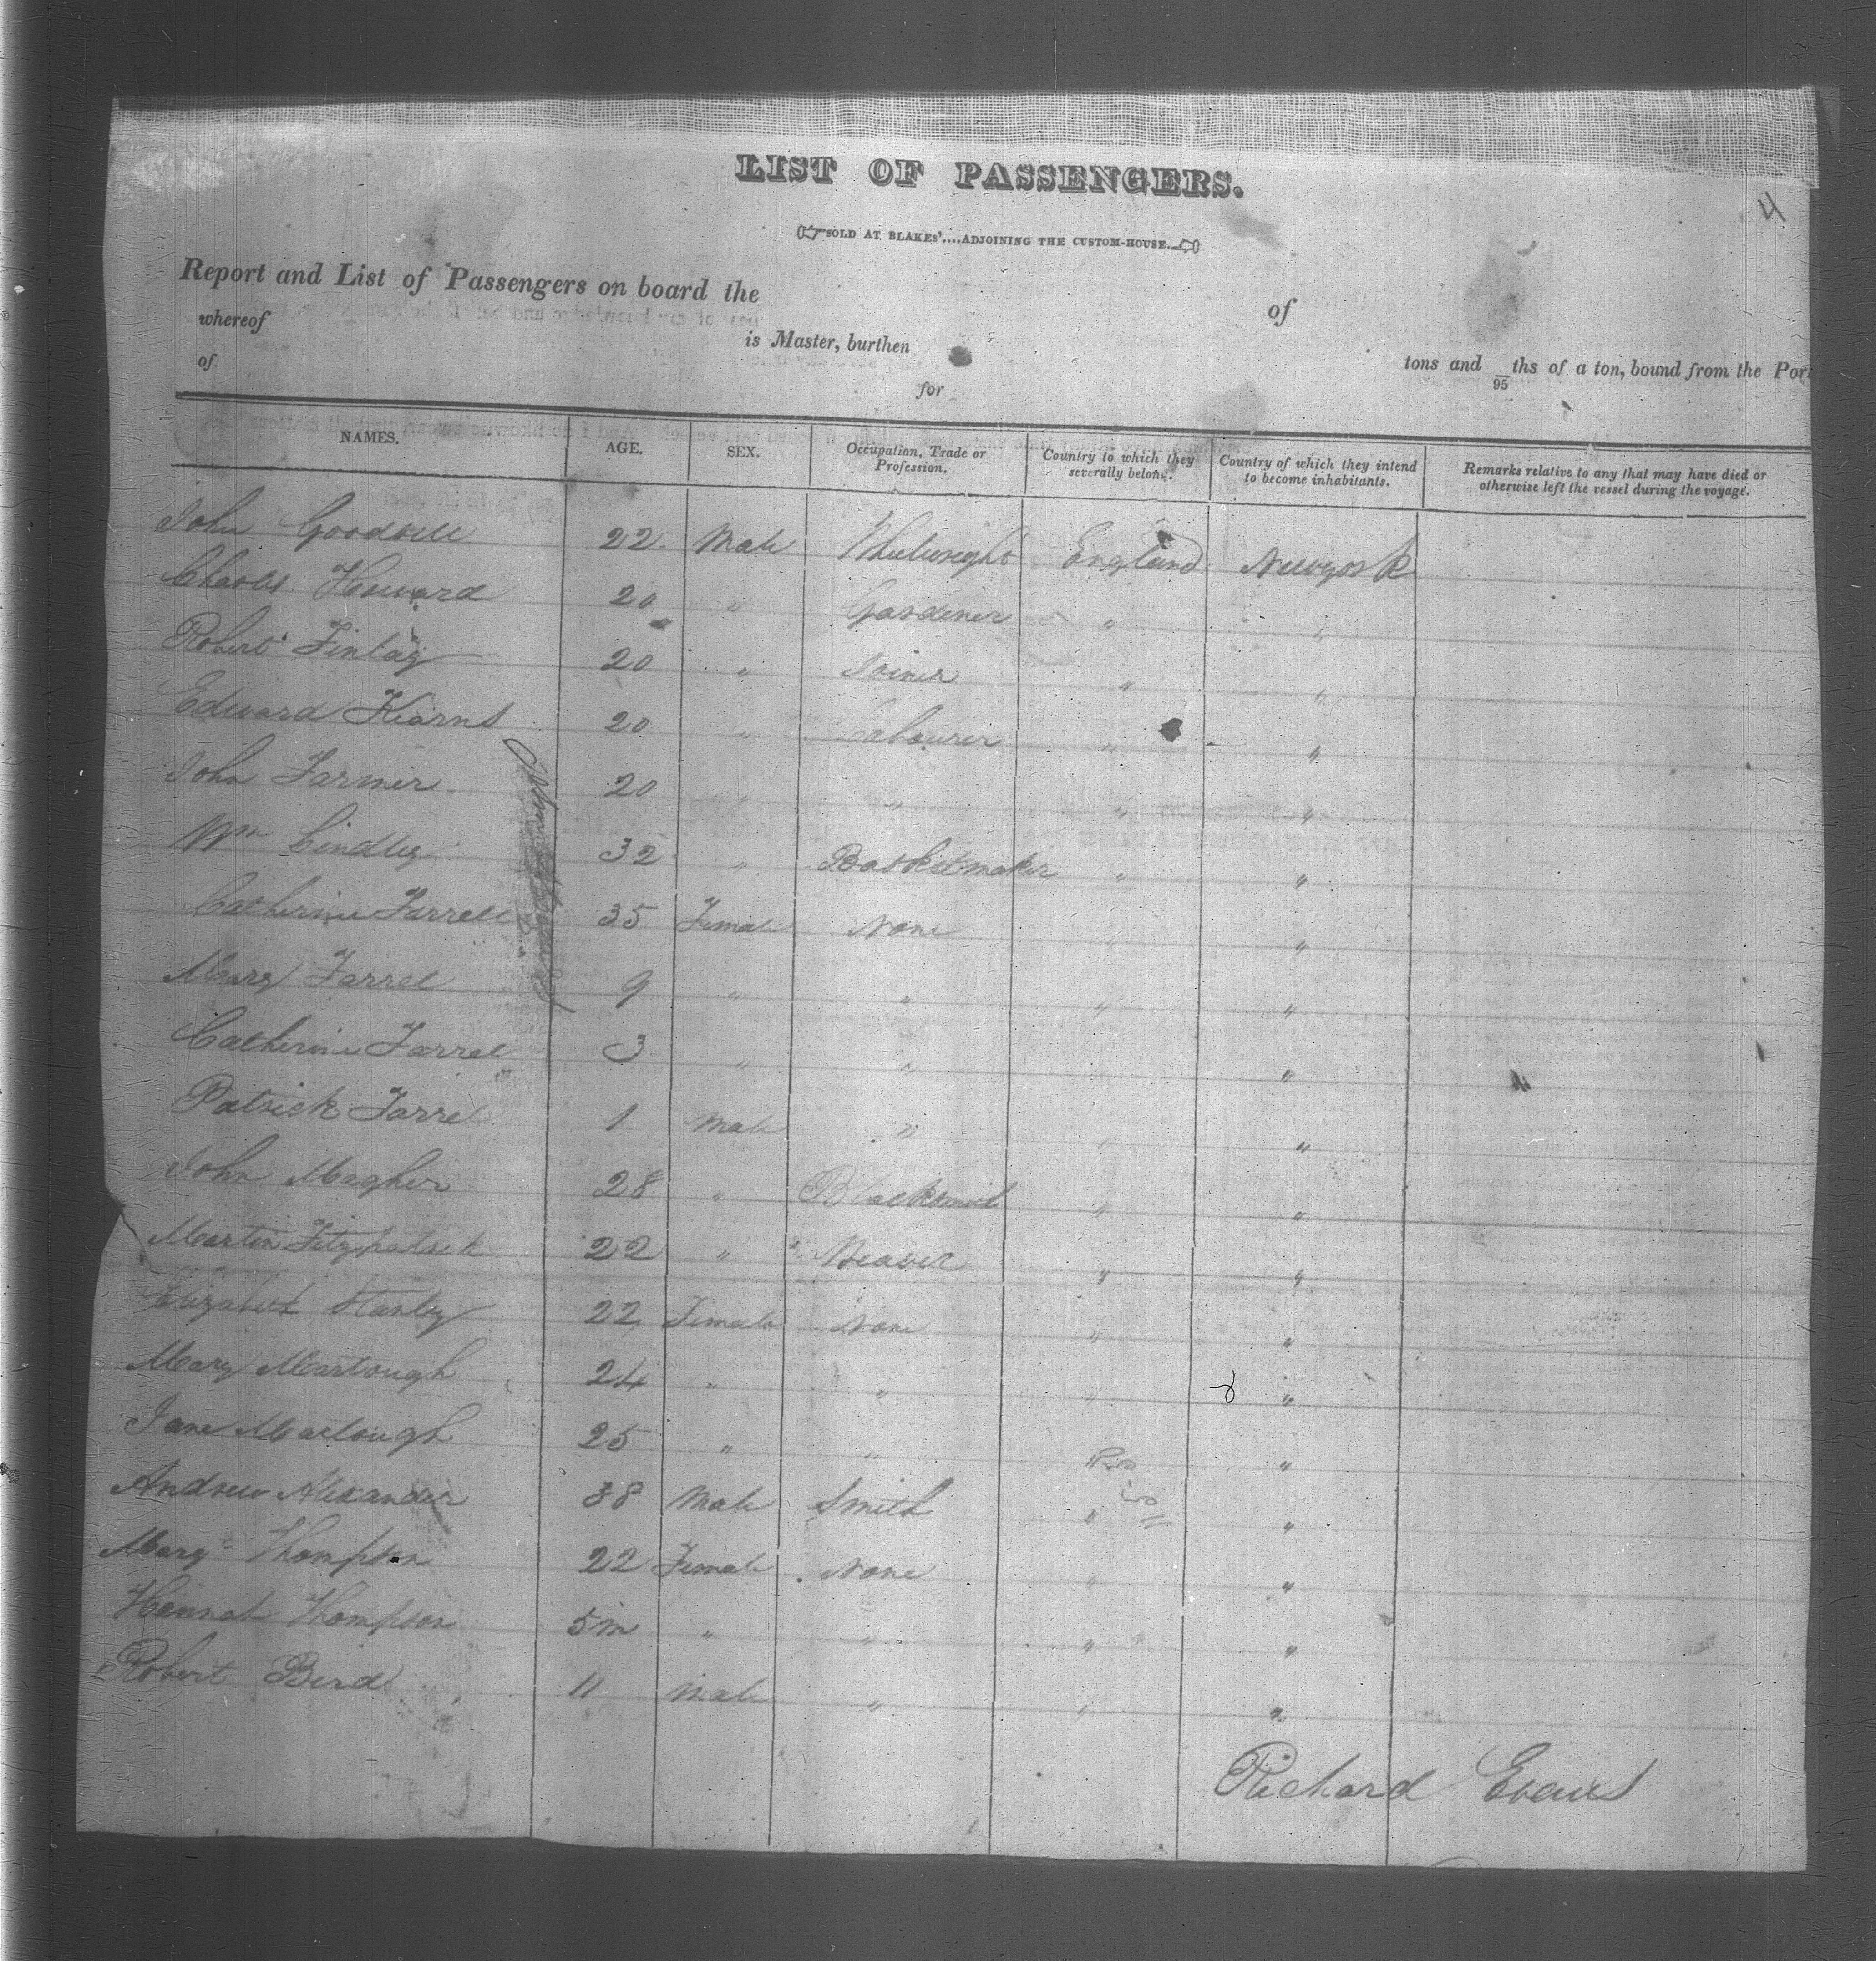 4
LIST OF PASSENGERS.
SOLD AT BLAKES'....ADJOINING THE CUSTOM-HOUSE.
Report and List of Passengers on board the of
whereof is Master, burthen tons and /95 ths of a ton, bound from the Port
of for
NAMES. AGE. SEX. Occupation, Trade or Profession. Country to which they severally belong. Country of which they intend to become inhabitants. Remarks relative to any that may have died or otherwise left the vessel during the voyage.
John 22 Male Whelwright England Newyork
Charles Howard 20 " Gardener " "
Robert Finlay 20 " Joiner " "
Edward Kearns 20 " Labourer " "
John Farmer 20 " " " "
Wm Lindley 32 " Basketmaker " "
Catherine Farrell 35 Female None " "
Mary Farrel 9 " " " "
Catherine Farrel 3 " " " "
Patrick Farrel 1 Male " " "
John Magher 28 " Blacksmith " "
Martin Fitzpatrick 22 " Weaver " "
Elizabeth Stanley 22 Female None " "
Mary Martough 24 " " " "
Jane Martough 25 " " "
Andrew Alexander 38 Male Smith " "
Mary Thompson 22 Female None " "
Hannah Thompson 5m " " " "
Robert Bird 11 Male " " "
Richard Evans